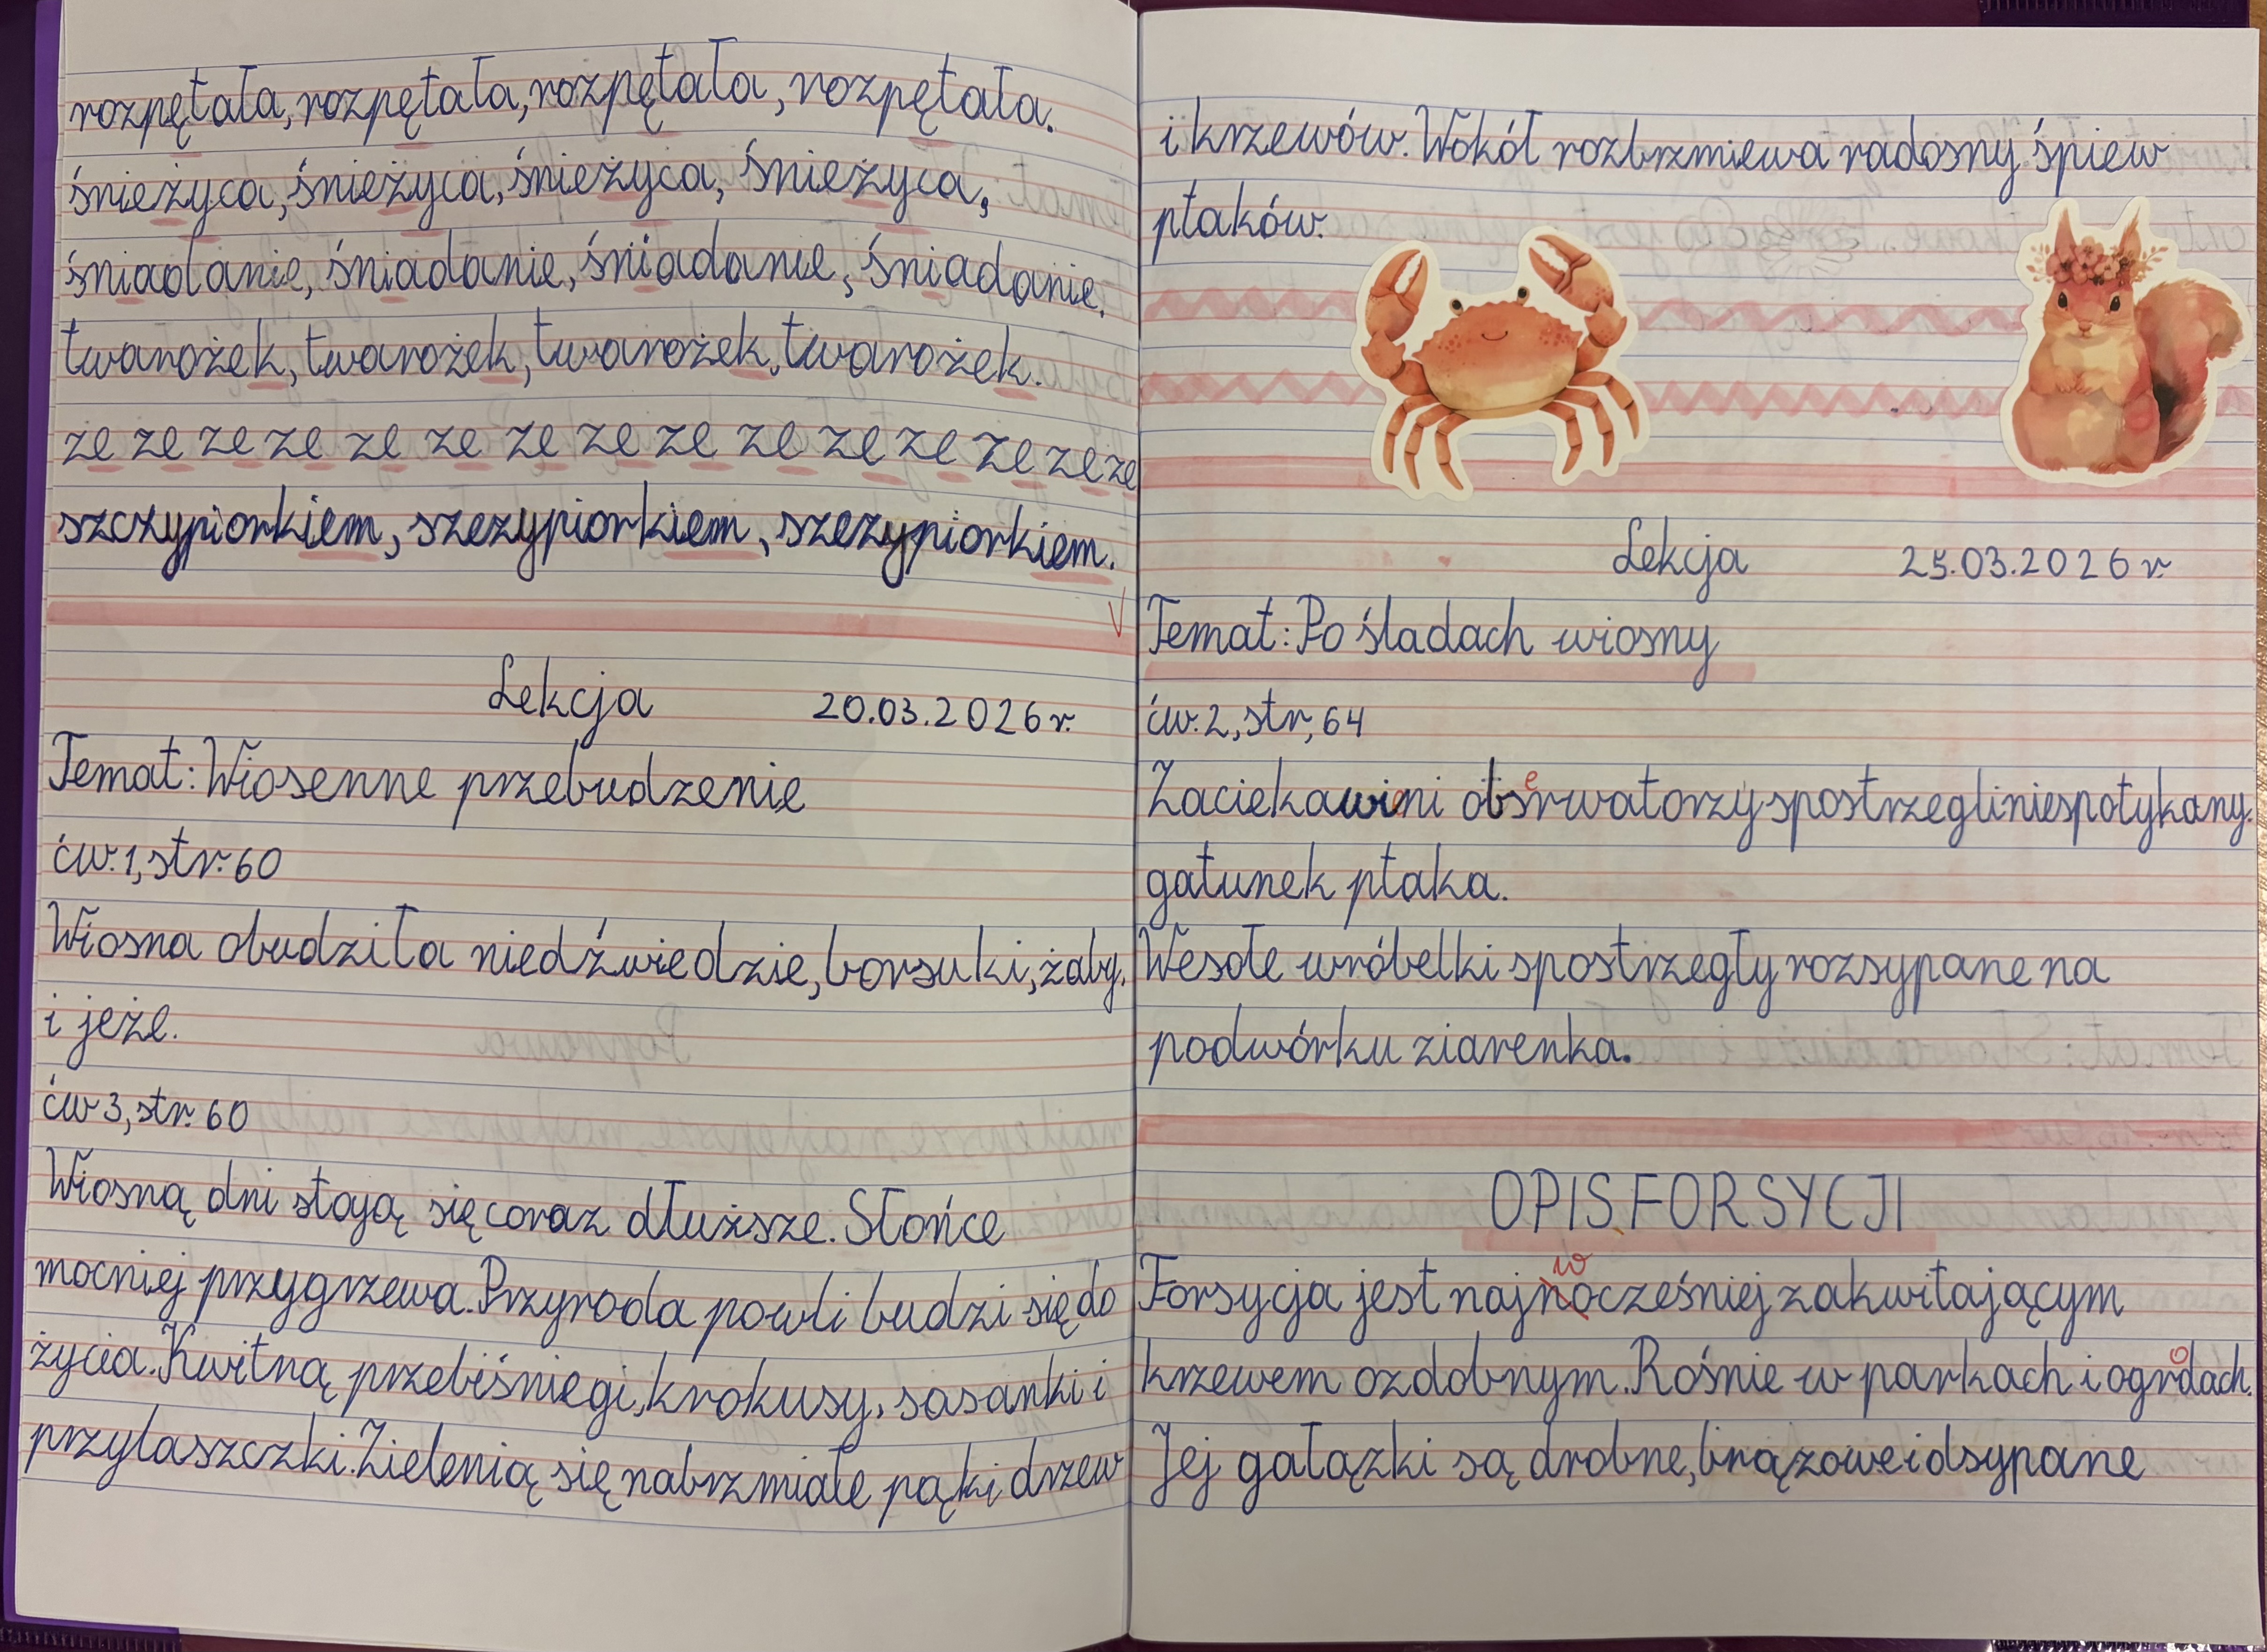 rozpętała, rozpętała, rozpętała, rozpętała.
śnieżyca, śnieżyca, śnieżyca, śnieżyca,
śniadanie, śniadanie, śniadanie, śniadanie.
twarożek, twarożek, twarożek, twarożek.
ze ze ze ze ze ze ze ze ze ze ze ze ze ze ze
szczypiorkiem, szczypiorkiem, szczypiorkiem.
Lekcja 20.03.2026 r.
Temat: Wiosenne przebudzenie
ćw. 1, str. 60
Wiosna obudziła niedźwiedzie, borsuki, żaby,
i jeże.
ćw 3, str. 60
Wiosną dni stają się coraz dłuższe. Słońce
mocniej przygrzewa. Przyroda powli budzi się do
życia. Kwitną przebiśniegi, krokusy, sasanki i
przylaszczki. Zielenią się nabrzmiałe pąki drzew
i krzewów. Wokół rozbrzmiewa radosny śpiew
ptaków.
Lekcja 25.03.2026 r.
Temat: Po śladach wiosny
ćw. 2, str, 64
Zaciekawieni obserwatorzy spostrzegli niespotykany.
gatunek ptaka.
Wesołe wróbelki spostrzegły rozsypane na
podwórku ziarenka.
OPIS FORSYCJI
Forsycja jest najwcześniej zakwitającym
krzewem ozdobnym. Rośnie w parkach i ogrodach.
Jej gałązki są drobne, brązowe i dsypane